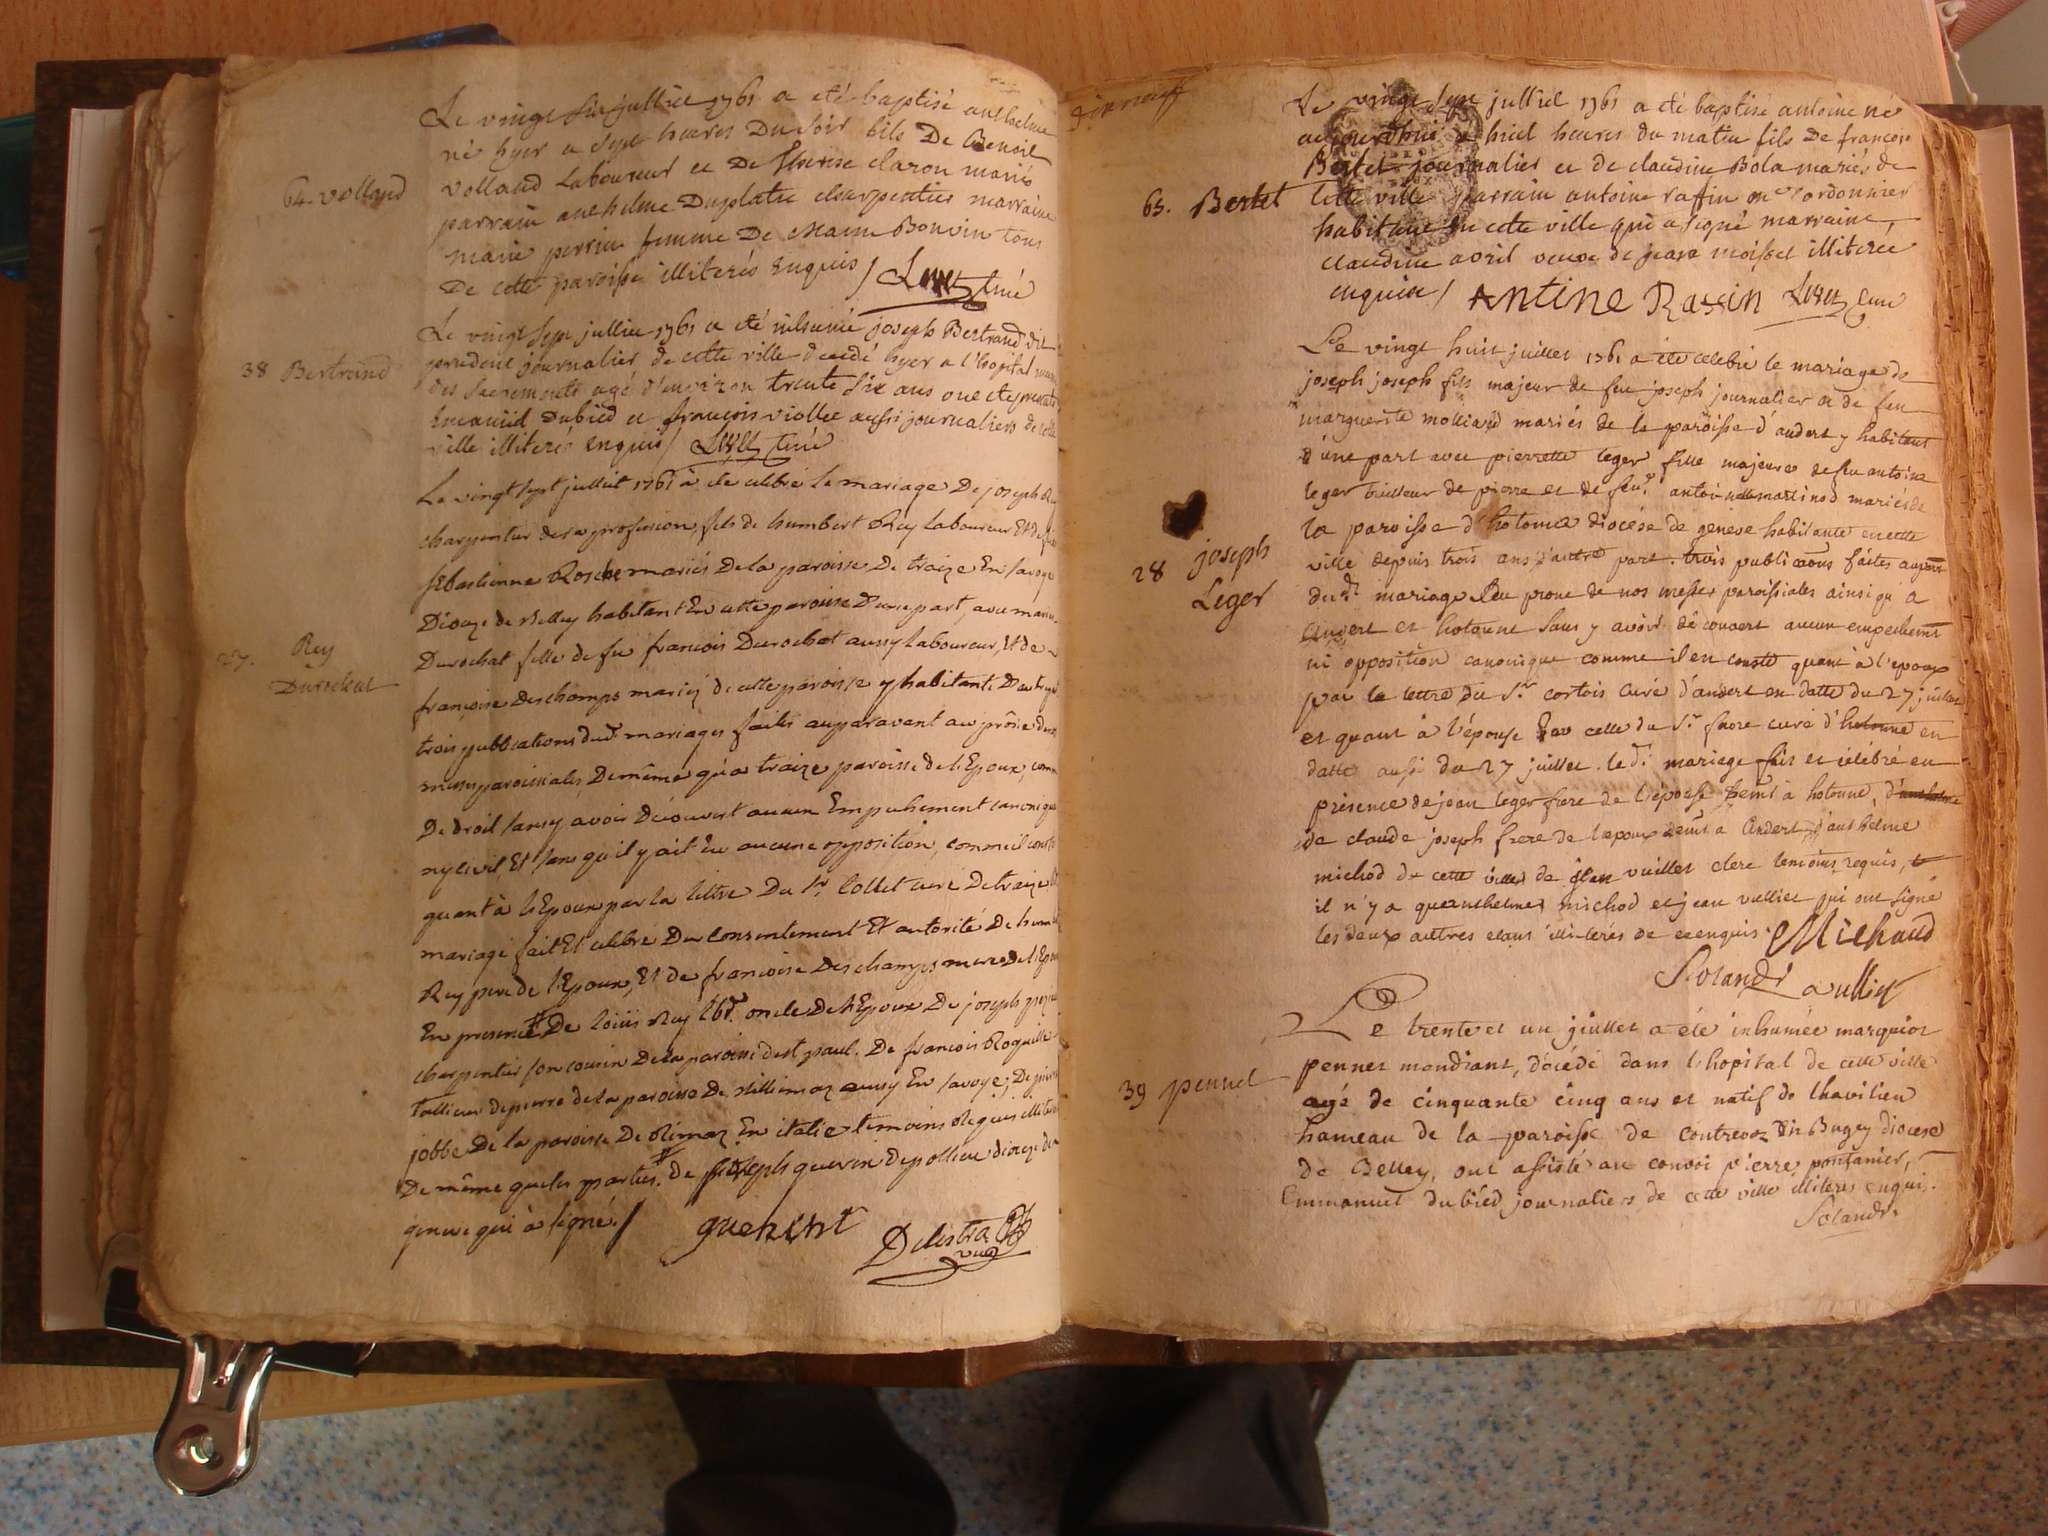 Le vingt six julliet 1761 a eté baptisé anthelme
né hyer a sept heures Du soir fils De Benoit
64. volland
volland Laboureur et De therese claron mariés
parrain anthelme Duplatre charpentier marraine
marie perrin femme De Bonvin tous
De cette paroisse illiterés enquis / curé
Le vingt sept julliet 1761 a eté inhumé joseph Bertrand dit
38 Bertrand
prudent journalier de cette ville decedé hyer a l'hopital muni
des sacrements agé d'environ trente six ans
Emanuel Dubied et françois viollet aussi journaliers de cette
ville illiterés enquis / curé
Le vingt sept julliet 1761 à eté celebré Le mariage De joseph Rey
charpentier de sa profession, fils de humbert Rey Laboureur Et de
sebastienne Roche mariés De la paroisse De traize En savoye
Dioceze de Belley habitant En cette paroisse D'une part, avec marie
27. Rey
Durochat
Durochat fille de feu francois Durochat aussy Laboureur, Et de
françoise Deschamps mariés de cette paroisse y habitante D'autre part
trois publications dud.t mariages faites auparavant au prône de
messes paroissiales De même qu'a traize paroisse de l'Epoux, comme
De droit sans y avoir Découvert aucun Empechement canonique
ny civil, Et sans qu'il y ait Eu aucune opposition, comme il conste
quant à l'Epoux par la lettre Du Sr. Collet curé De traize
mariage fait Et celebré Du consentement Et autorité De humbert
Rey pere de l'Epoux, Et de francoise Deschamps mere De l'Epouse
En presence De Loüis Rey oncle De l'Epoux De joseph
charpentier son cousin De la paroisse de st paul. De francois Roquille
tallieur de pierre de la paroisse De aussy En savoye; De pierre
jobbe De la paroisse De En italie temoins Requis illiterés
De même que les parties. de joseph guerin de pollieu dioceze de
geneve qui à signé. /
guerint
Delestra
vic
dix neuf
Le vingt sept julliet 1761 a eté baptisé antoine né
aujourdhui a huit heures du matin fils de françois
Bertet journalier et de claudine Bola mariés de
65. Bertet
Cette ville parrain antoine raffin me Cordonnier
habitant En cette ville qui a signé marraine
claudine avril veuve de illiterée
enquise / Antine Raffin curé
Le vingt huit juillet 1761 a été celebré le mariage de
joseph joseph fils majeur de feu joseph journalier et de feu
marguerite molliard mariés de la paroisse d'andert y habitant
d'une part avec pierrette leger fille majeure de feu antoine
leger tailleur de pierre et de feu antoinette martinod mariés de
la paroisse d'hotonne diocése de genève habitante en cette
28 joseph
Leger
ville depuis trois ans d'autre part. trois publicaõns faites auparavt
du dt. mariage au prone de nos messes paroissiales ainsi qu'a
andert et hotonne sans y avoir découvert aucun empechemt
ni opposition canonique comme il en conste quant à l'epoux
par la lettre du Sr. cortois curé d'andert en datte du 27 juillet
et quant à l'épouse par celle du Sr. favre curé d'hotonne en
datte aussi du 27 juillet. le dt. mariage fait et célébré en
présence de jean leger frere de l'épouse demt à hotonne,
de claude joseph frere de l'epoux demt a Andert, d'anthelme
michod de cette ville, de jean vuillet clerc temoins requis,
il n'y a que anthelme michod et jean vulliet qui ont signé
les deux autres etans illiterés de ce enquis. Michaud
Solandr vulliet
Le trente et un juillet a été inhumée marquiot
39 pennet
pennet mendiant, décédé dans l'hopital de cette ville
agé de cinquante cinq ans et natif de thavilieu
hameau de la paroisse de contrevoz en Bugey diocese
de Belley, ont assisté au convoi pierre pontanier,
Emmanuel dubied journaliers de cette ville illiteres enquis.
Solandr.